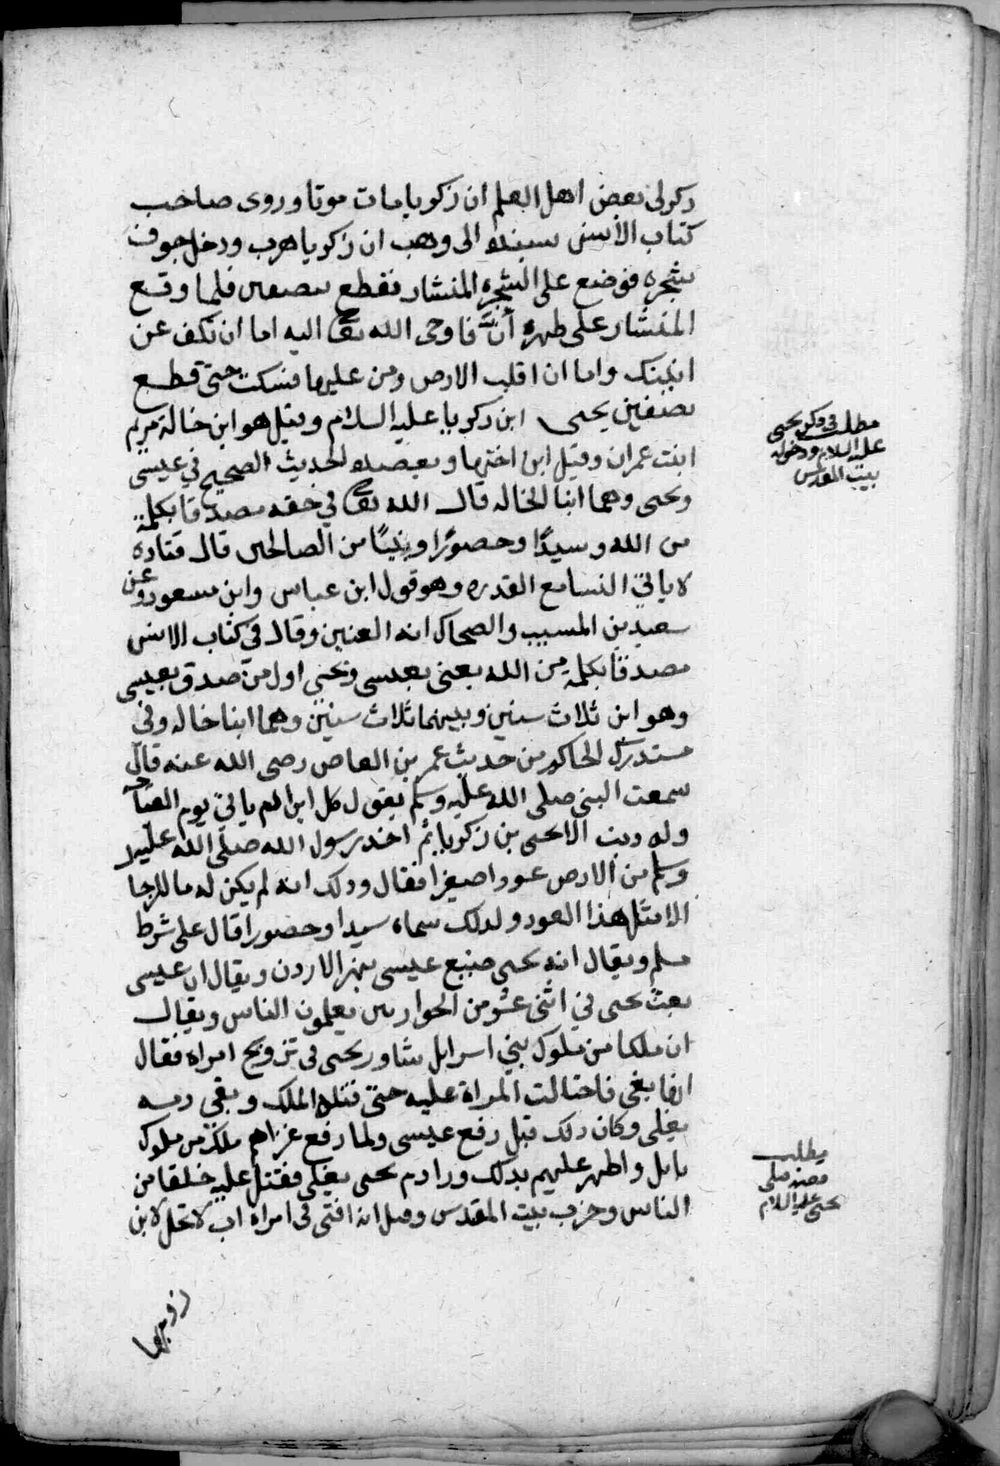 ذكر لى بعض اهل العلم ان زكريا مات موتا وروى صاحب
كتاب الأنس بسنده الى وهب ان زكريا هرب ودخل جوف
شجرة فوضع على الشجرة المنشار فقطع بنصفين فلما وقع
المنشار على ظهره أنَّ فاوحى الله تعالى اليه اما ان تكف عن
انينك واما ان اقلب الارض ومن عليها فسكت حتى قطع
نصفين يحيى ابن زكريا عليه السلام وقيل هو ابن خالة مريم
ابنت عمران وقيل ابن اختها ويعضده الحديث الصحيح في عيسى
ويحيى وهما ابنا الخاله قال الله تعالى في حقه مصدقا بكلمة
من الله وسيدًا وحصورًا ونبيًا من الصالحين قال قتادة
لا ياتي النسا مع القدره وهو قول ابن عباس وابن مسعود وعن
سعيد بن المسيب والضحاك انه العنين وقال في كتاب الانس
مصدقًا بكلمة من الله يعنى بعيسى ويحيى اول من صدق بعيسى
وهو ابن ثلاث سنين وبينهما ثلاث سنين وهما ابنا خاله وفي
مستدرك الحاكم من حديث عمر بن العاص رضى الله عنه قال
سمعت النبى صلى الله عليه وسلم يقول كل ابن ادم ياتى يوم القيامة
وله ذنب الا يحيى بن زكريا ثم اخذ رسول الله صلى الله عليه
وسلم من الارض عودا صغيرا فقال وذلك انه لم يكن له ما للرجا
الا مثل هذا العود ولذلك سماه سيدا وحصورا قال على شرط
مسلم ويقال انه يحيى صبغ عيسى بنهر الاردن ويقال ان عيسى
بعث يحيى في اثنى عشر من الحواريين يعلمون الناس ويقال
ان ملكا من ملوك بني اسرايل شاور يحيى فى تزويج امراة فقال
انها بغى فاحتالت المراة عليه حتى قتله الملك وبقي دمه
يغلى وكان ذلك قبل رفع عيسى ولما رفع غزاهم ملك من ملوك
بابل واظهر عليهم بذلك وراى دم يحيى يغلى فقتل عليه خلقا من
الناس وخرب بيت المقدس وقيل انه افتى فى امراة اب لا تحل لابن
زوجها
مطلب فى ذكر يحيى
عليه السلام ودخوله
بيت المقدس
مطلب
يحيى عليه السلام